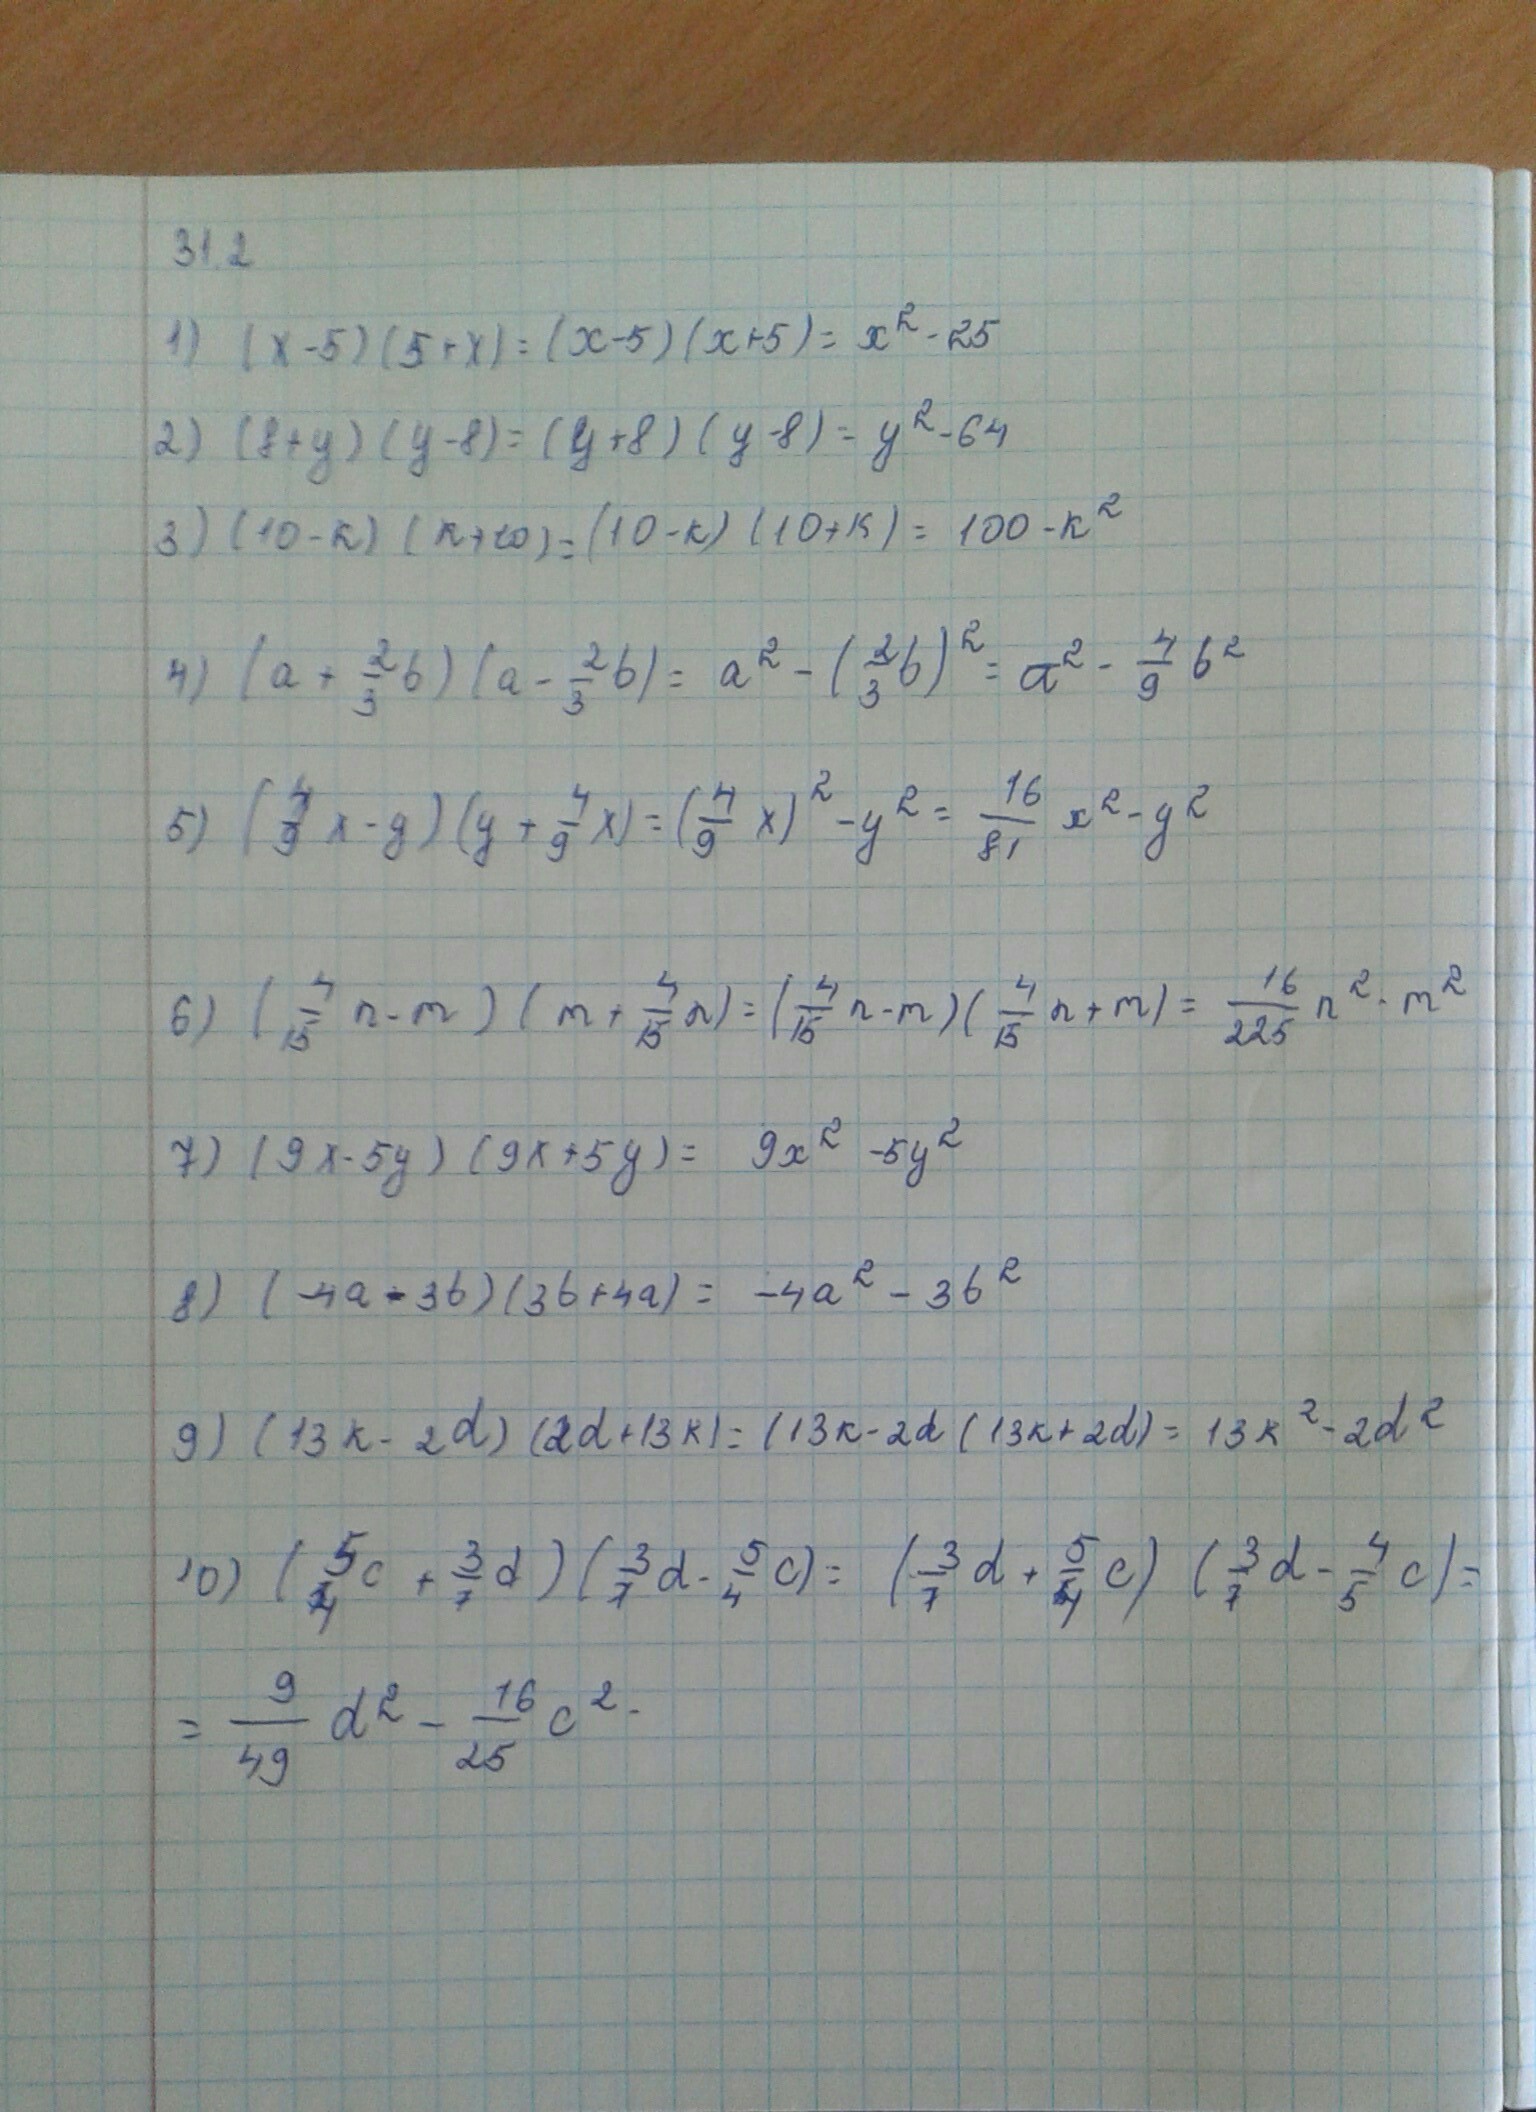 31.2
1) (x-5)(5+x)=(x-5)(x+5)=x²-25
2) (8+y)(y-8)=(y+8)(y-8)=y²-64
3) (10-k)(k+10)=(10-k)(10+k)=100-k²
4) (a+2/3b)(a-2/3b)=a²-(2/3b)²=a²-4/9b²
5) (4/9x-y)(y+4/9x)=(4/9x)²-y²=16/81x²-y²
6) (4/15n-m)(m+4/15n)=(4/15n-m)(4/15n+m)=16/225n²-m²
7) (9x-5y)(9x+5y)= 9x²-5y²
8) (-4a-3b)(3b+4a)= -4a²-3b²
9) (13k-2d)(2d+13k)=(13k-2d(13k+2d)=13k²-2d²
10) (5/4c+3/7d)(3/7d-5/4c)=(3/7d+5/4c)(3/7d-4/5c)=
=9/49d²-16/25c².